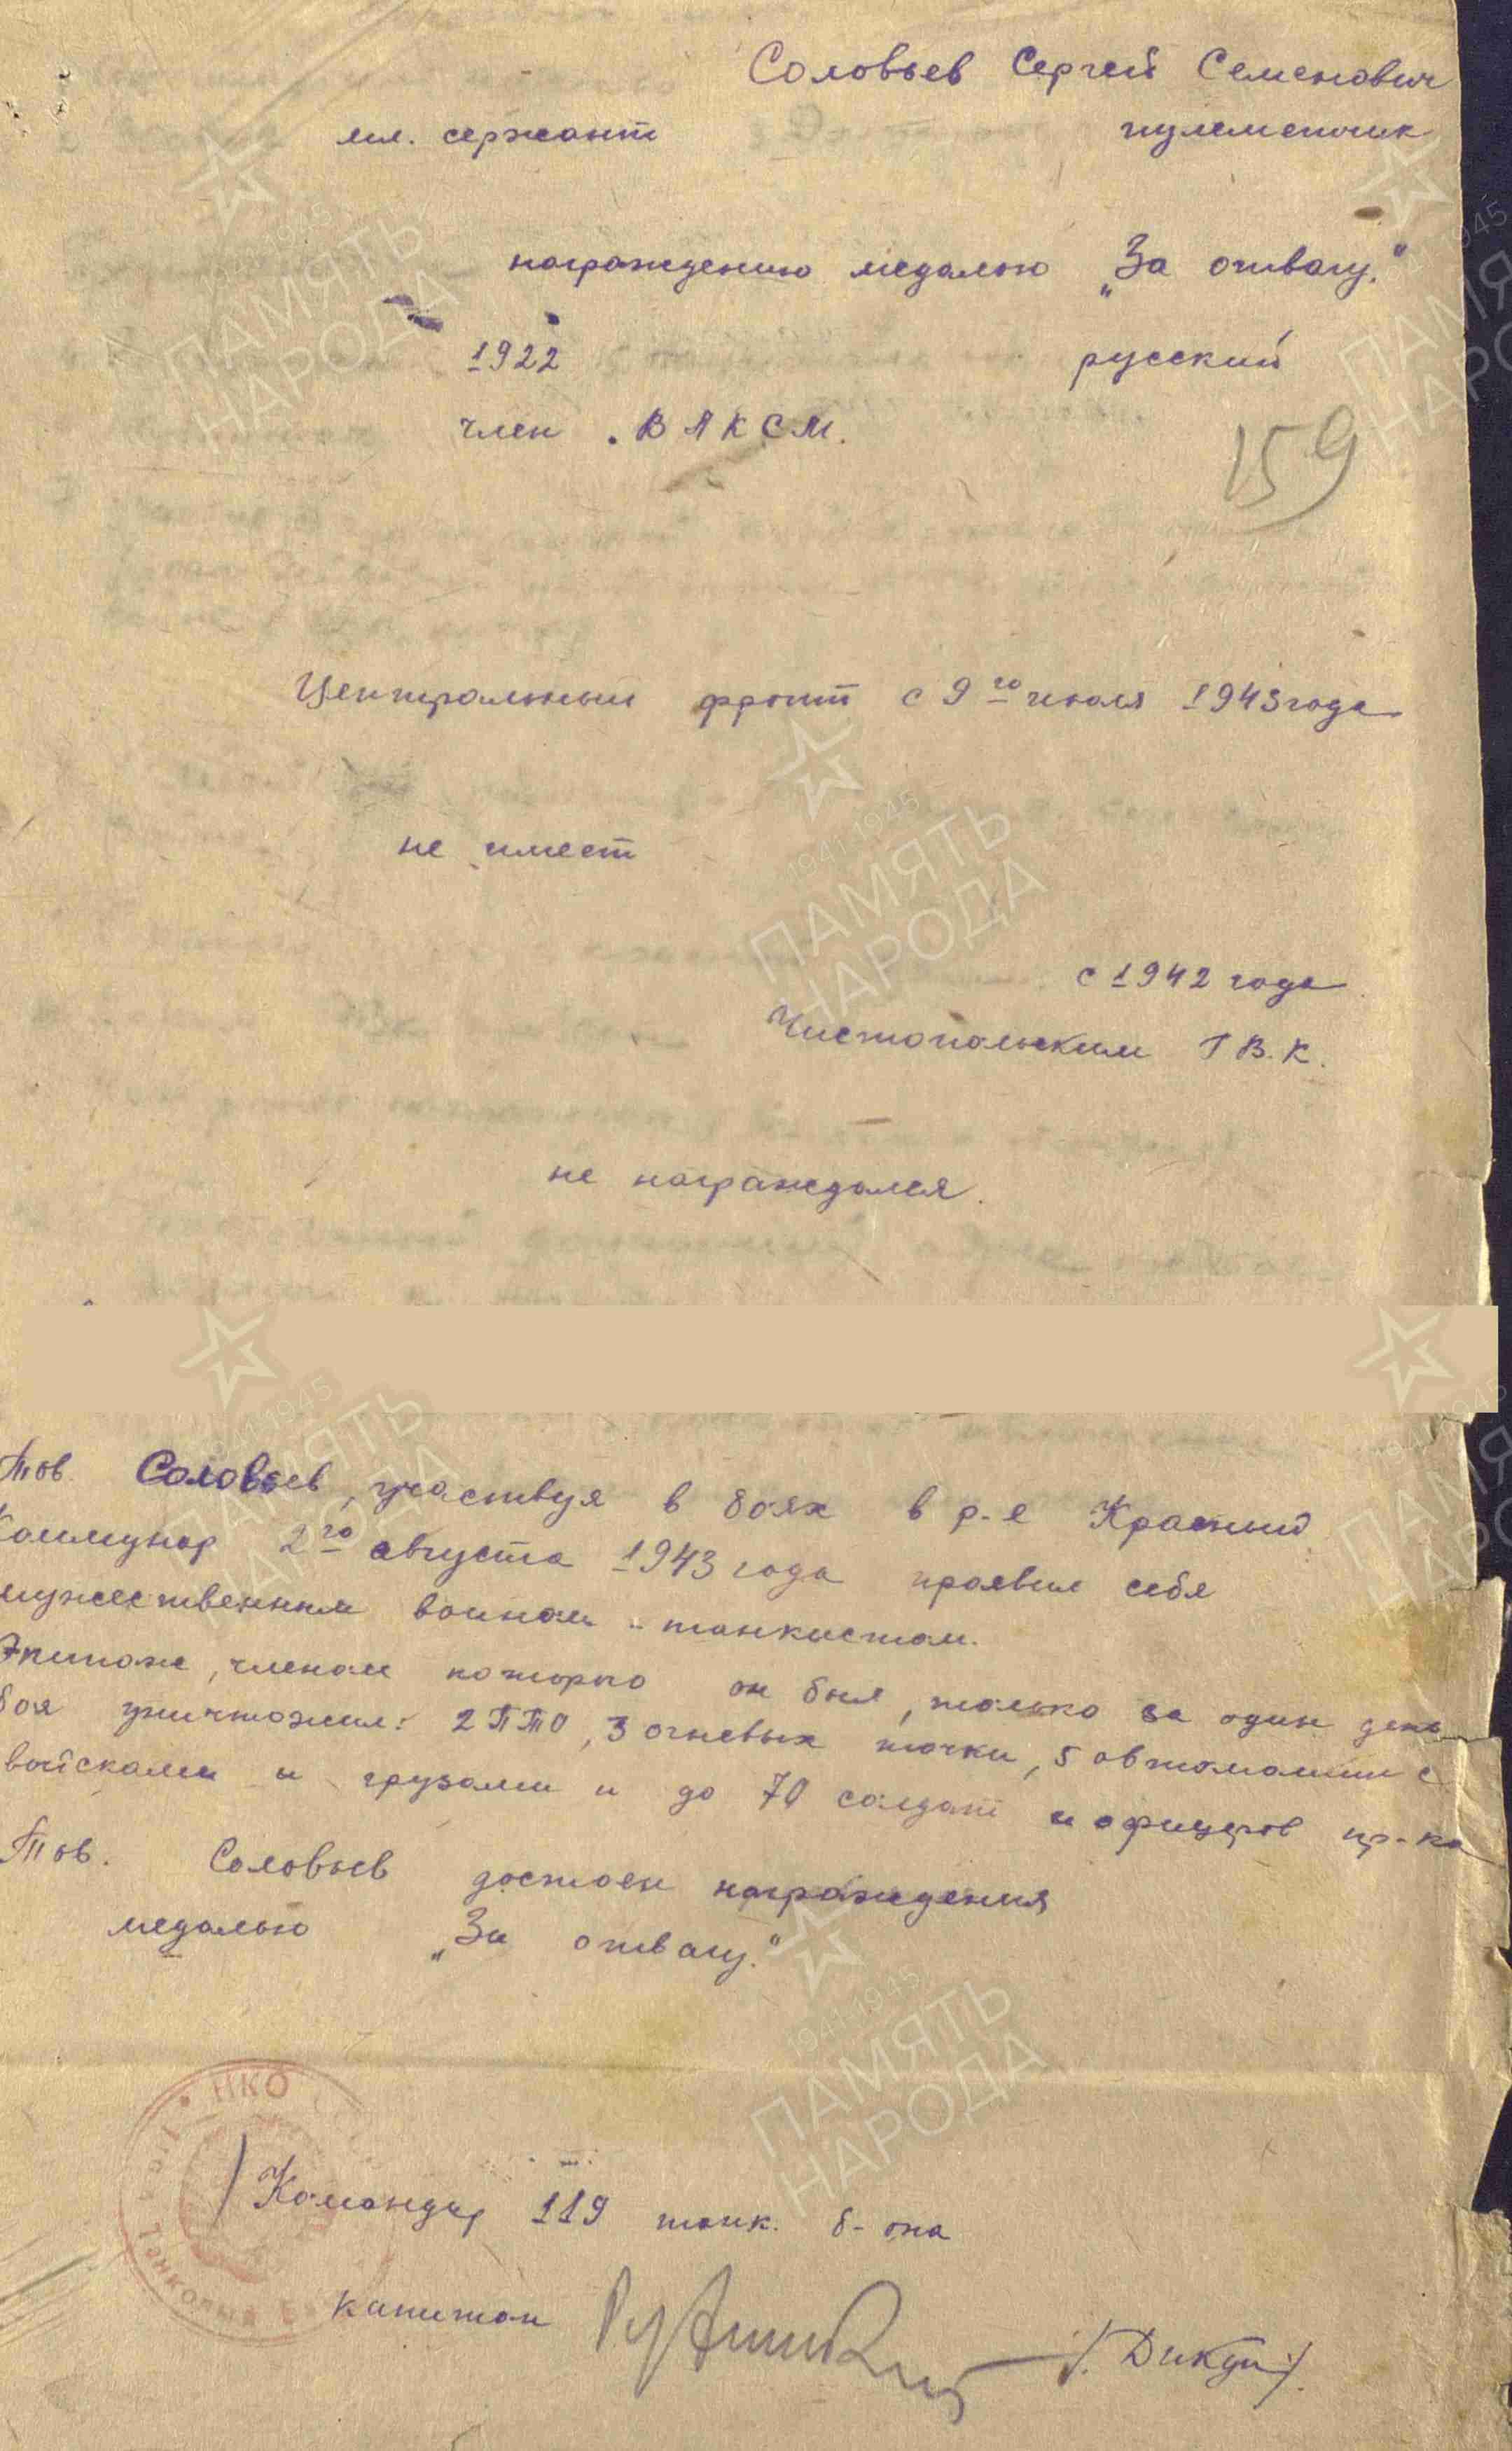 Соловьев Сергей Семенович
мл. сержант пулеметчик
награждению медалью „За отвагу."
1922 русский
член . ВЛКСМ.
159
Центральный фронт с 9го июля 1943 года
не имеет
с 1942 года
Чистопольским Г В. К.
не награждался.
Тов. Соловьев, участвуя в боях в р-е Красный
Коммунар 2го августа 1943 года проявил себя
мужественным воином - танкистом.
Экипаж, членом которго он был, только за один день
боя уничтожил: 2 ПТО, 3 огневых точки, 5 автомашин с
войсками и грузами и до 70 солдат и офицеров пр-ка
Тов. Соловьев достоен награждения
медалью „За отвагу."
НКО
Танковый
Командир 119 танк. б-она
капитан /. Дикун /.
ПАМЯТЬ НАРОДА
1941-1945